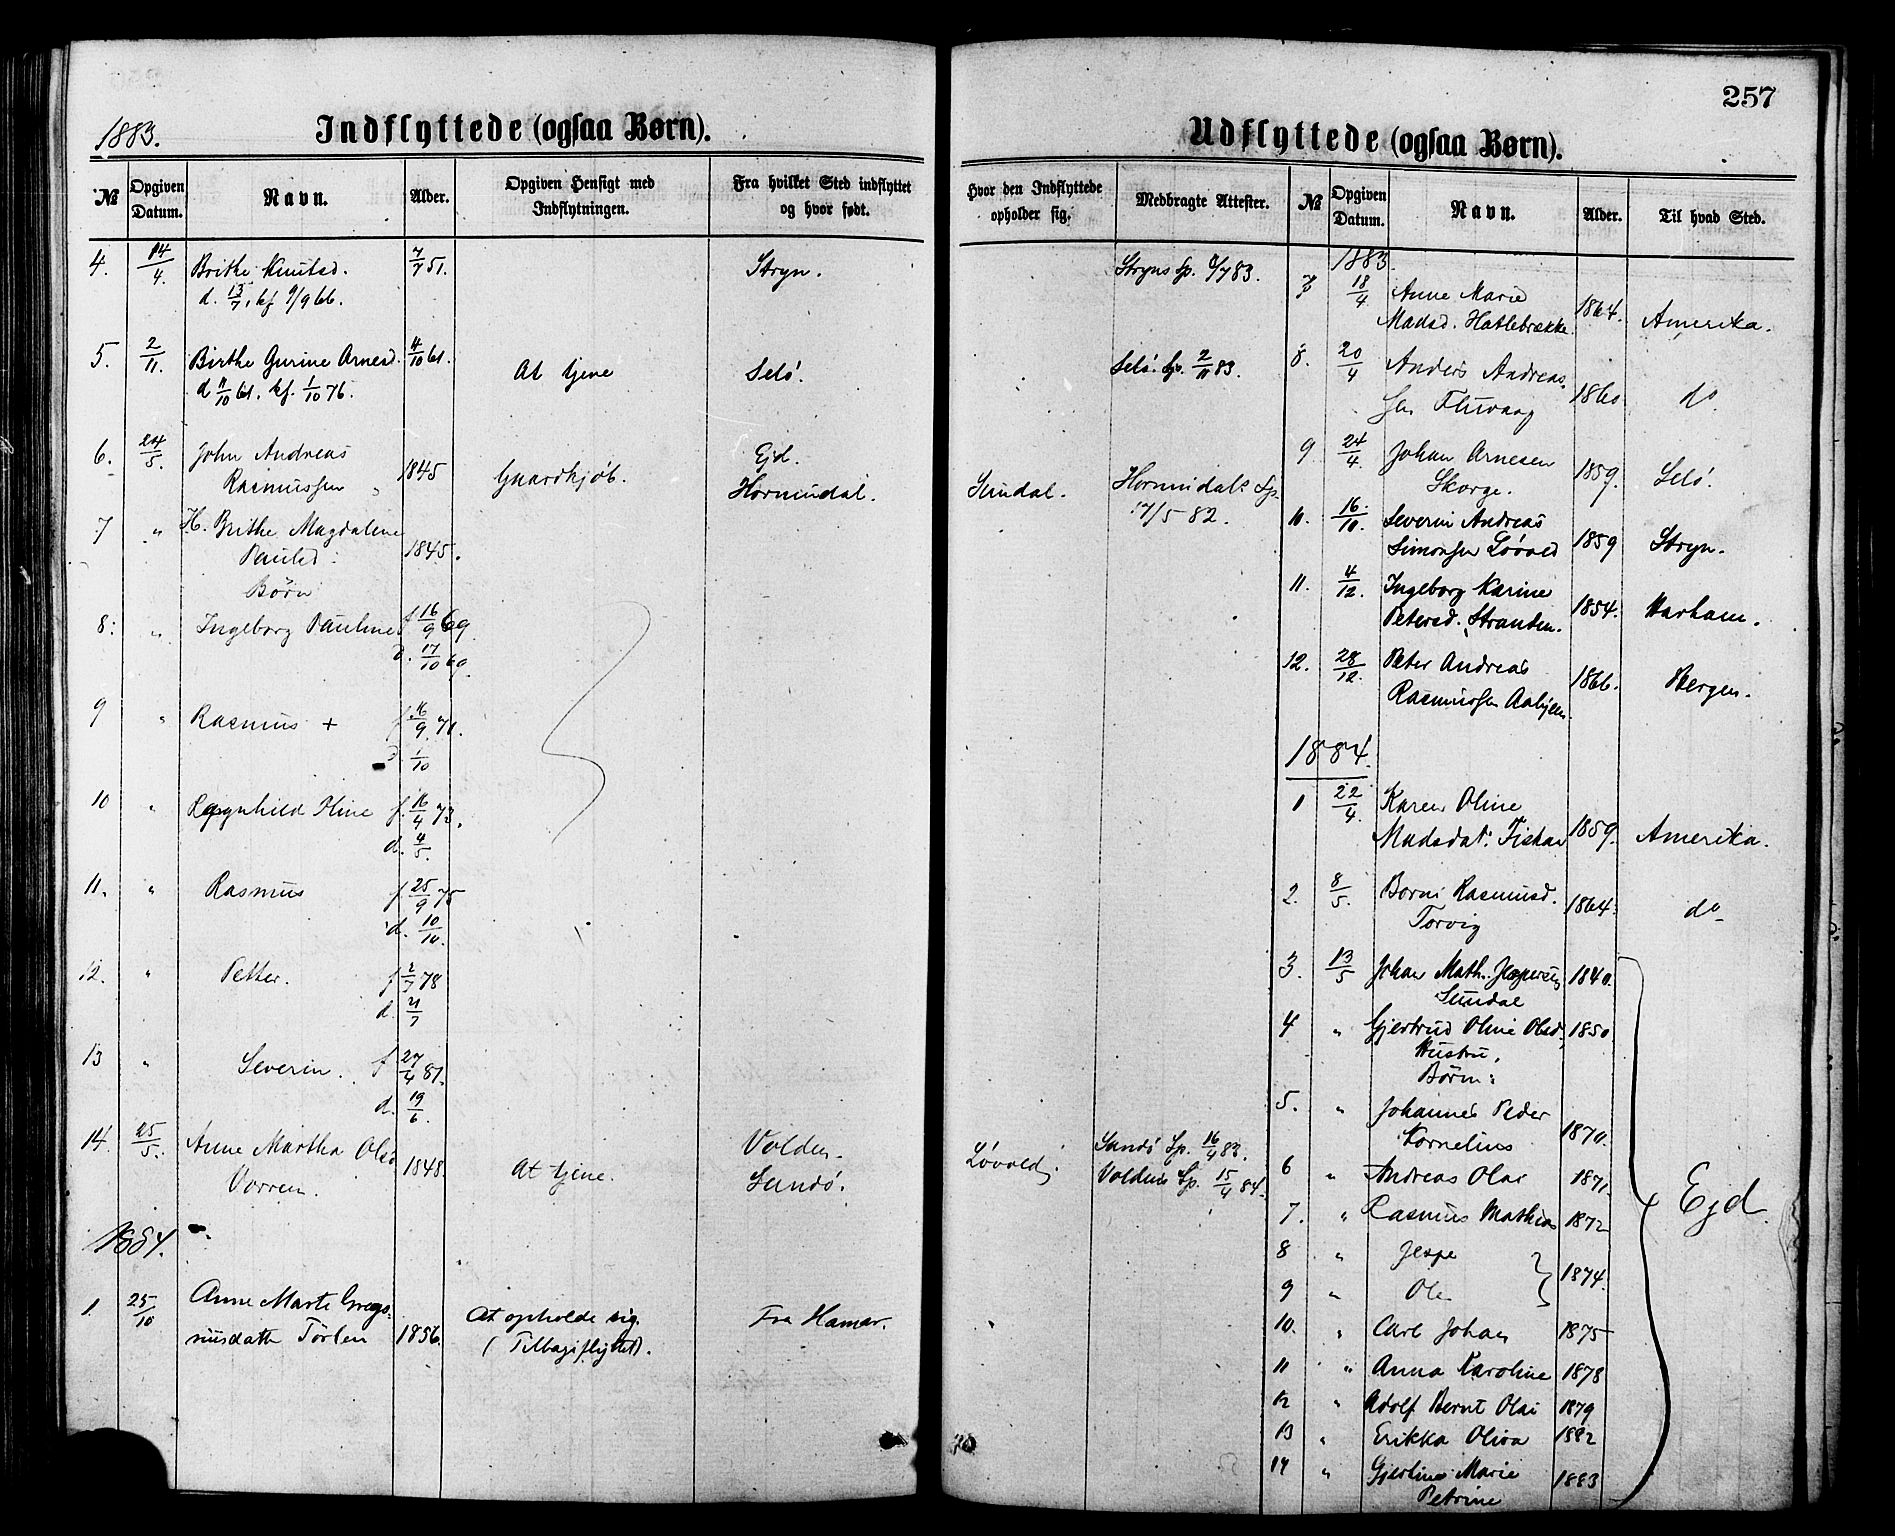 257
1883.
Indflyttede (ogsaa Børn).
№ Opgiven Datum. Navn. Alder. Opgiven Hensigt med Indflytningen. Fra hvilket Sted indflyttet og hvor født.
4. 14/4. Brithe Knutsd. 7/7 51. Stryn.
d. 13/7, kf 9/9 66.
5. 2/11. Birthe Gurine Arnesd. 4/10 61. At tjene Selö.
d 11/10 61. kf. 1/10 76.
6. 24/5. John Andreas Ejd.
Rasmussen 1845 Gaardkjøb. Hornindal.
7 " H. Brithe Magdalene
Paulsd. 1845.
Børn
8. " Ingeborg Pauline f 16/9 69
d. 17/10 69.
9 " Rasmus + f. 16/9 71.
d 1/10
10 " Ragnhild Oline f. 16/4 73.
d. 4/5.
11. " Rasmus f. 25/9 75
d. 10/10.
12. " Petter. f 2/7 78
d. 21/7
13 " Severin. f 27/4 81.
d. 19/6.
14. 25/5. Anne Martha Olsd Volden.
Vorren. 1848. At tjene. Sandö.
1884.
1. 25/10 Anne Marte Grego-
riusdatter 1856. At opholde sig. Fra Hamar.
(Tilbageflyttet).
Udflyttede (ogsaa Børn).
Hvor den Indflyttede opholder sig. Medbragte Attester. № Opgiven Datum. Navn. Alder. Til hvad Sted.
Stryns Sp.
Selö Sp. 2/11 83.
Sundal. Hornindals Sp.
17/5 82.
Løvold. Sandö Sp. 16/4 83.
Voldens Sp. 15/4 84.
1883.
7 18/4 Anne Marie
Madsd. Hatlebrække 1864. Amerika.
8. 20/4 Anders Andreas-
sen 1860 do
9 24/4. Johan Arnesen
Skorge. 1859. Selö.
10. 16/10. Severin Andreas
Simonsen Løvold 1859 Stryn.
11. 4/12. Ingeborg Karine
Petersd. Stranden. 1854. Harham.
12. 28/12. Peter Andreas
Rasmussen 1866. Bergen.
1884.
1 22/4. Karen Oline
Madsdat. 1859. Amerika.
2. 8/5. Rasmusd.
Torvig 1864. do
3. 13/5 Johan Math. Jespersen 1840.
Sundal
4 " Gjertrud Oline Olsd. 1850.
Hustru,
Børn:
5. " Johannes Peder
Kornelius 1870.
6 " Andreas Olai 1871.
7. " Rasmus Mathias 1872
8 " Jespe
9 " Ole } 1874.
Ejd.
10. " Carl Johan 1875
11 " Anna Karoline 1878
12 " Adolf Bernt Olai 1879
13 " Erikka Oliva 1882
14 " Gjertine Marie
Petrine 1883